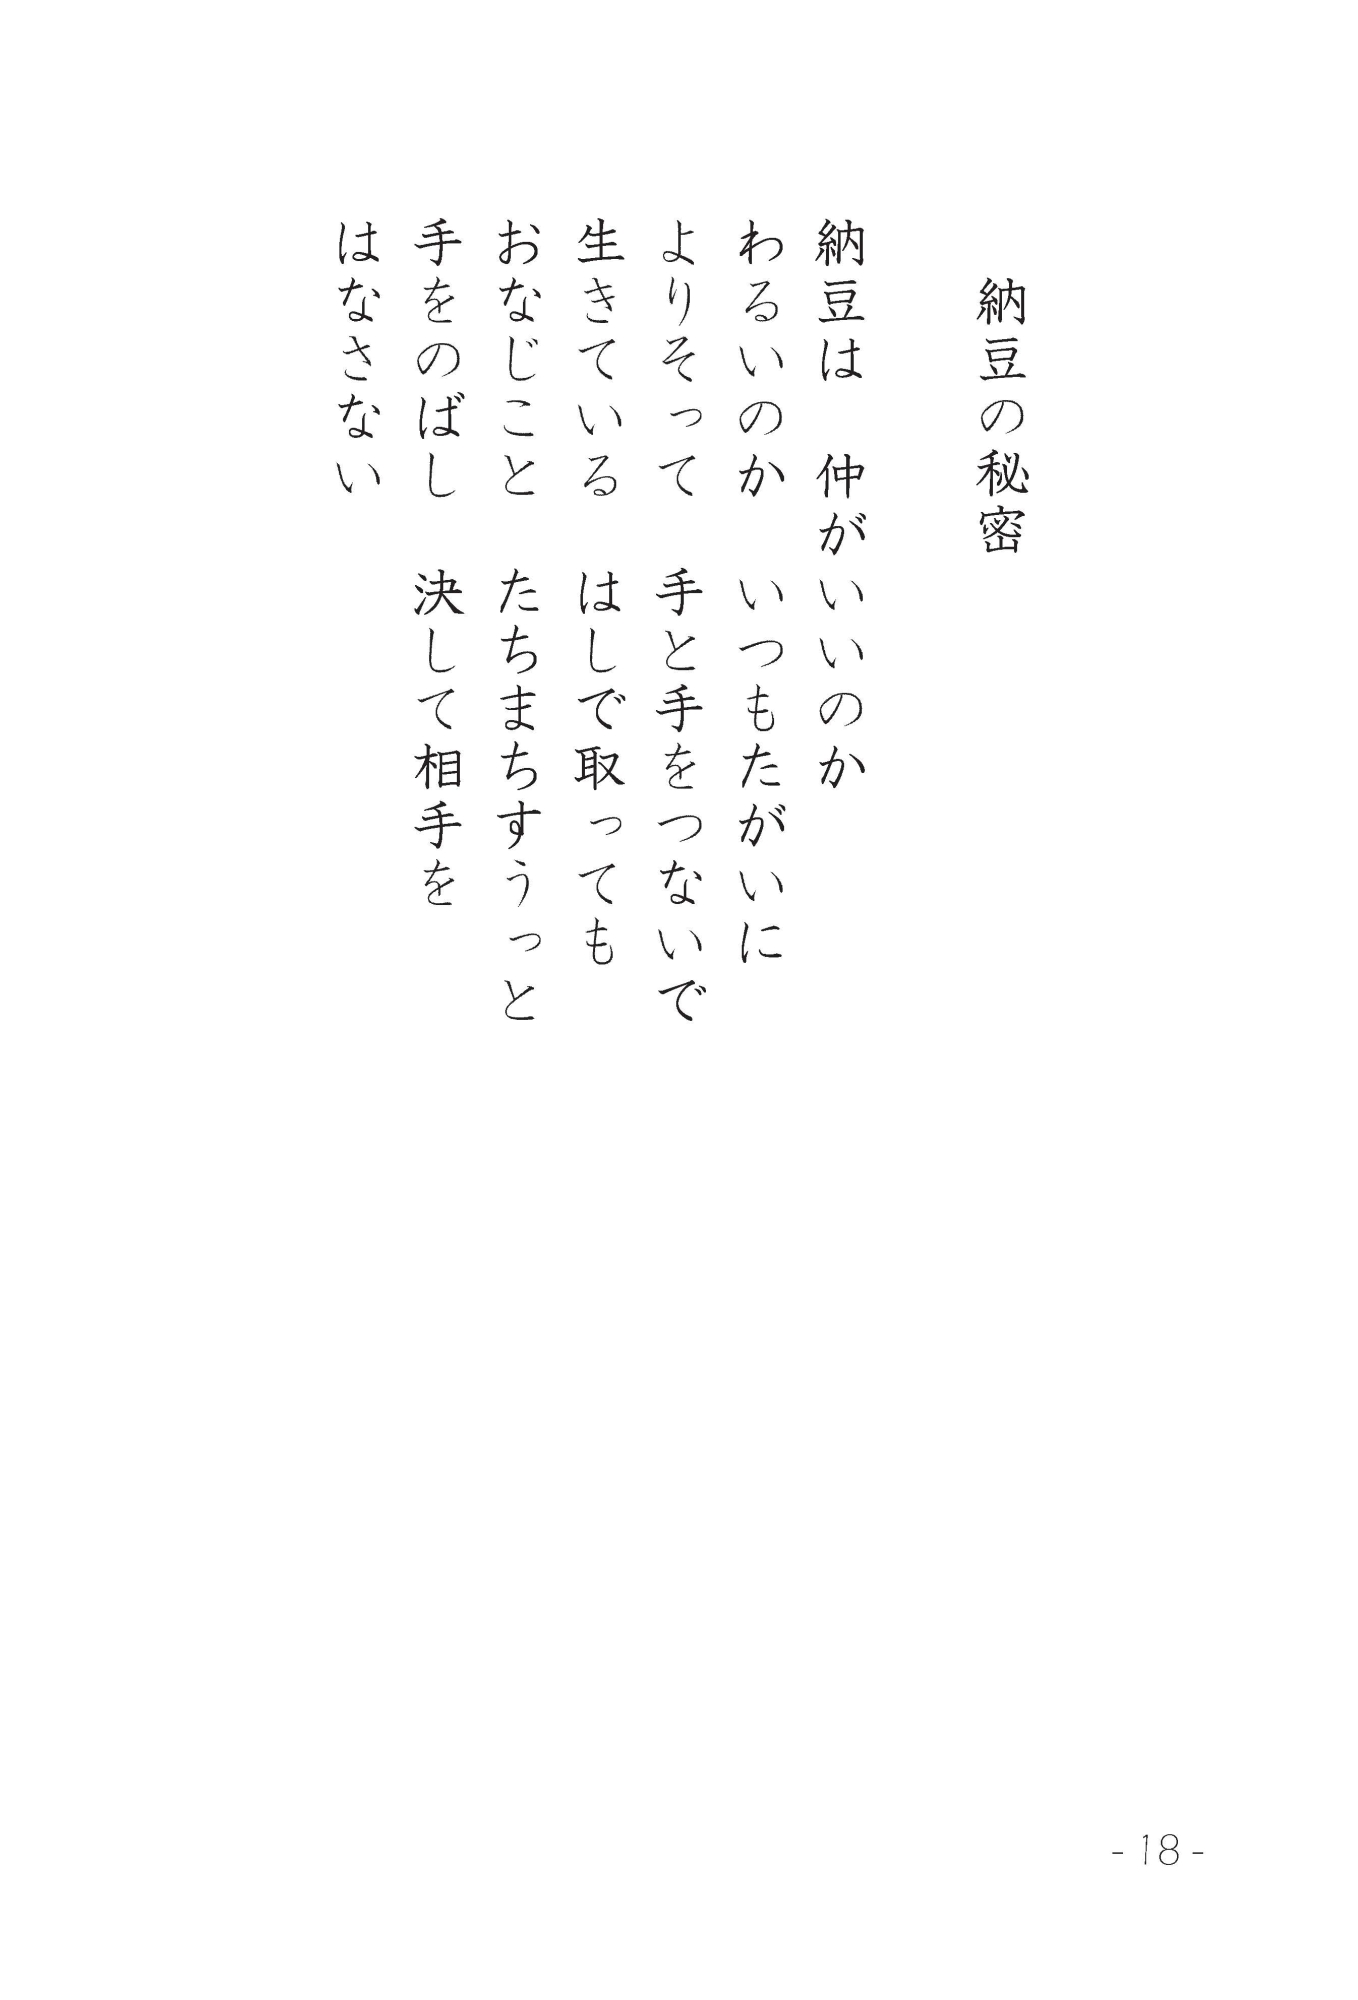 納豆の秘密
納豆は　仲がいいのか
わるいのか　いつもたがいに
よりそって　手と手をつないで
生きている　はしで取っても
おなじこと　たちまちすうっと
手をのばし　決して相手を
はなさない
- 18 -